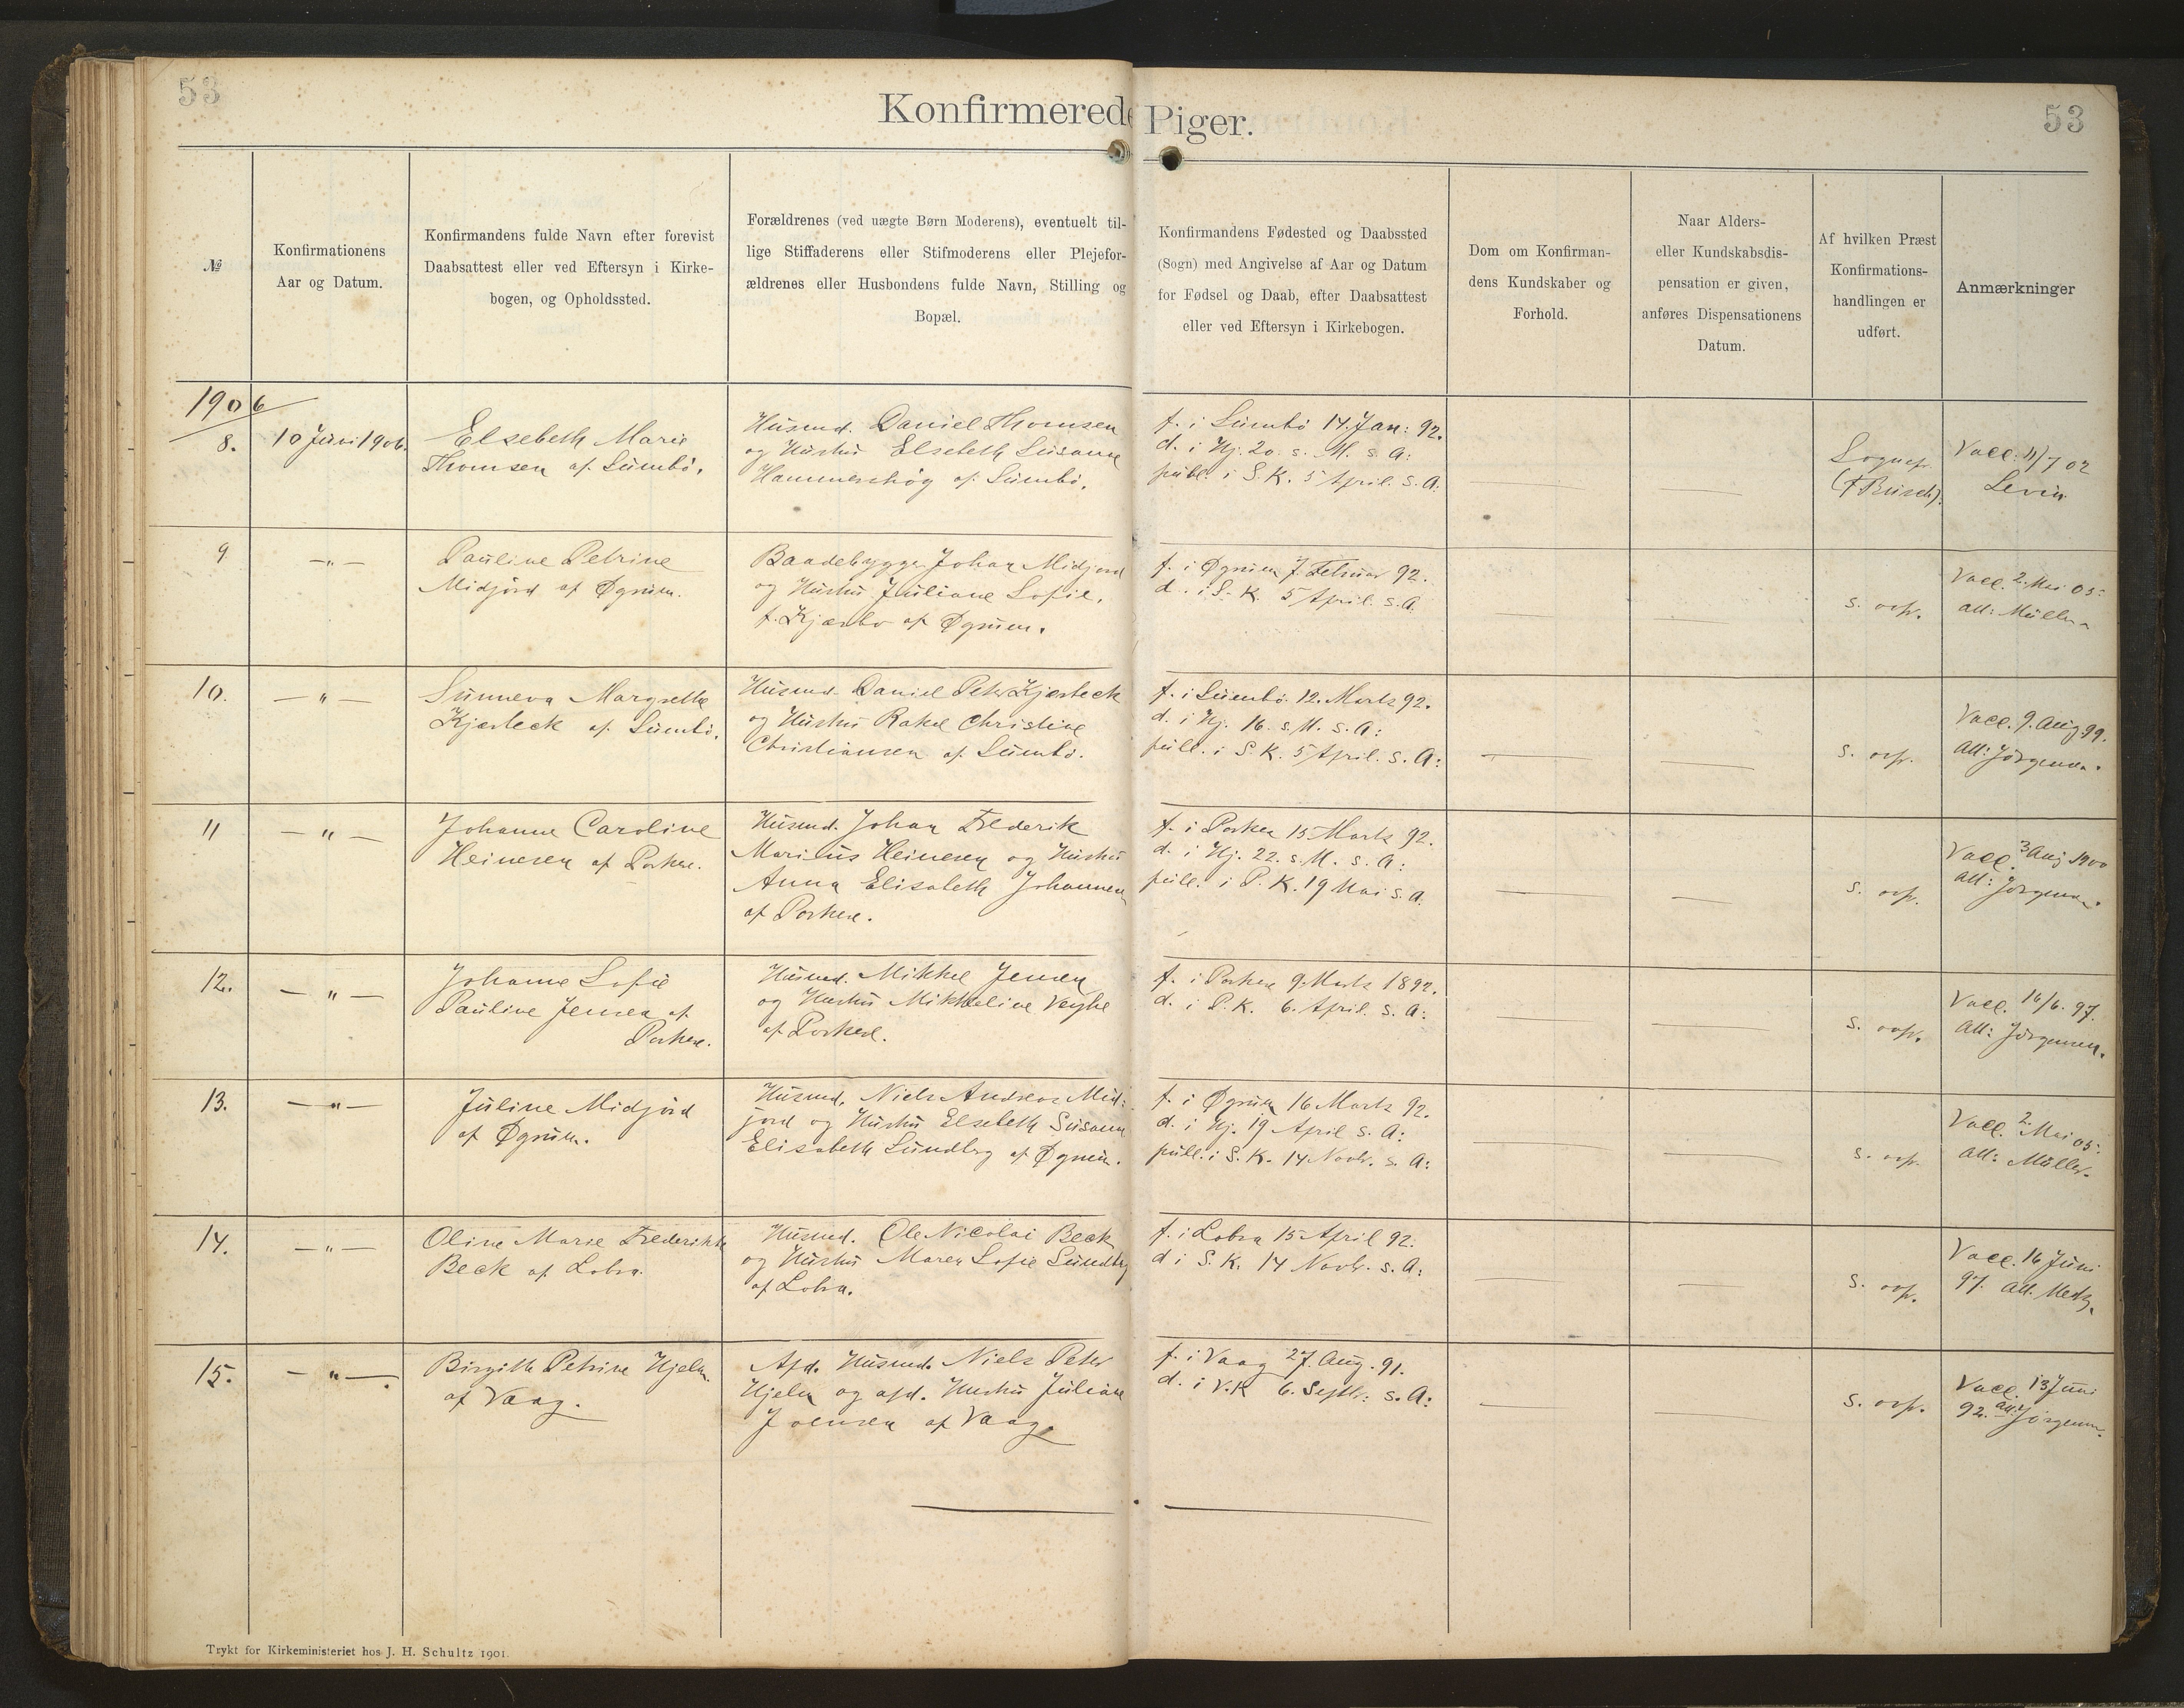 53
53
Konfirmerede Piger.
№
Konfirmationens
Aar og Datum.
Konfirmandens fulde Navn efter forevist
Daabsattest eller ved Eftersyn i Kirke-
bogen, og Opholdssted.
Forældrenes (ved uægte Børn Moderens), eventuelt til-
lige Stiffaderens eller Stifmoderens eller Plejefor-
ældrenes eller Husbondens fulde Navn, Stilling og
Bopæl.
Konfirmandens Fødested og Daabssted
(Sogn) med Angivelse af Aar og Datum
for Fødsel og Daab, efter Daabsattest
eller ved Eftersyn i Kirkebogen.
Dom om Konfirman-
dens Kundskaber og
Forhold.
Naar Alders-
eller Kundskabsdis-
pensation er given,
anføres Dispensationens
Datum.
Af hvilken Præst
Konfirmations-
handlingen er
udført.
Anmærkninger
1906
8.
10 Juni 1906.
Elsebeth Marie
Thomsen af Sumbø.
Husmd. Daniel Thomsen
og Hustru Elsebeth Susanne
Hammershøg af Sumbø.
f. i Sumbø 14. Jan: 92.
d. i Hj. 20. s. M. s. A:
publ. i S. K. 5 April. s. A:
Sognepr.
(F Busch).
Vacc. 11/7 02
Levin
9
—„—
Pauline Petrine
Midjord af Øgrum.
Baadebygger Johan Midjord
og Hustru Juliane Sofie,
f. Kjærbo af Øgrum.
f. i Øgrum 7. Februar 92.
d. i S. K. 5 April. s. A.
s. ovfr.
Vacc. 2. Mai 05:
Att: Müller
10.
—„—
Sunneva Margrethe
Kjærbeck af Sumbø.
Husmd. Daniel Peter Kjærbeck
og Hustru Rakel Christine
Christiansen af Sumbø.
f. i Sumbø. 12. Marts 92.
d. i Hj. 16. s. M. s. A:
publ. i S. K. 5 April. s. A:
s. ovfr.
Vacc. 9. Aug 99.
Att: Jörgensen.
11
—„—
Johanne Caroline
Heinesen af Porkere.
Husmd. Johan Frederik
Marius Heinesen og Hustru
Anna Elisabeth Johannesen
af Porkere.
f. i Porkere 15 Marts 92.
d. i Hj. 22. s. M. s. A:
publ. i P. K. 19 Mai s. A.
s. ovfr.
Vacc. 3 Aug 1900
Att: Jörgensen.
12.
—„—
Johanne Sofie
Pauline Jensen af
Porkere.
Husmd. Mikkel Jensen
og Hustru Mikkeline Veyhe
af Porkere.
f. i Porkere 9. Marts 1892.
d. i P. K. 6. April. s. A:
s. ovfr.
Vacc. 16/6. 97.
Att: Jörgensen.
13.
—„—
Juline Midjord
af Øgrum.
Husmd. Niels Andreas Mid:
jord og Hustru Elsebeth Susanne
Elisabeth Lundberg af Øgrum.
f. i Øgrum 16 Marts 92.
d. i Hj. 19 April s. A:
publ. i S. K. 14 Novbr. s. A:
s. ovfr.
Vacc. 2. Mai 05:
Att: Müller.
14.
—„—
Oline Marie Frederikke
Beck af Lobra.
Husmd. Ole Nicolai Beck
og Hustru Maren Sofie Lundberg
af Lobra.
f. i Lobra 15 April 92.
d i S. K. 14 Novbr. s. A:
s. ovfr.
Vacc. 16 Juni
97. Att.
15.
—„—.
Birgithe Petrine Hjelm
af Vaag.
Afd. Husmd. Niels Peter
Hjelm og afd. Hustru Juliane
Joensen af Vaag.
f. i Vaag 27. Aug. 91.
d. i V. K 6. Septbr: s. A:
s. ovfr.
Vacc. 13 Juni
92. Att: Jörgensen.
Trykt for Kirkeministeriet hos J. H. Schultz 1901.